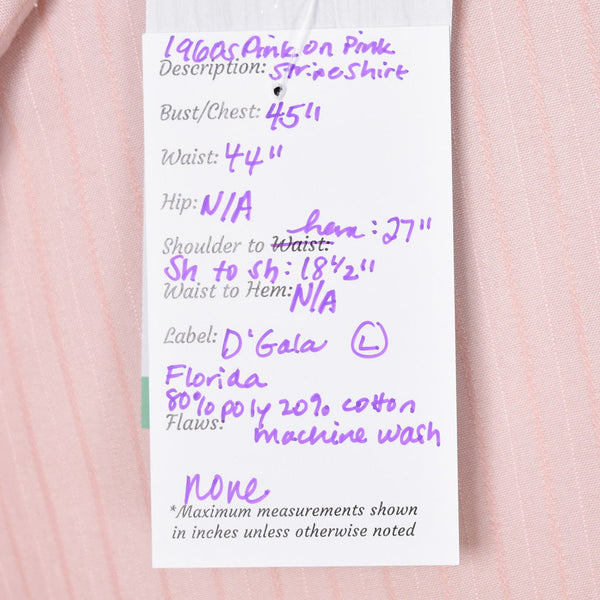 1960s Pink on Pink
Description: Stripe Shirt
Bust/Chest: 45"
Waist: 44"
Hip: N/A
hem: 27"
Shoulder to Waist:
Sh to sh: 18 1/2"
Waist to Hem: N/A
Label: D'Gala L
Florida
80% poly 20% cotton
Flaws: machine wash
none
*Maximum measurements shown
in inches unless otherwise noted